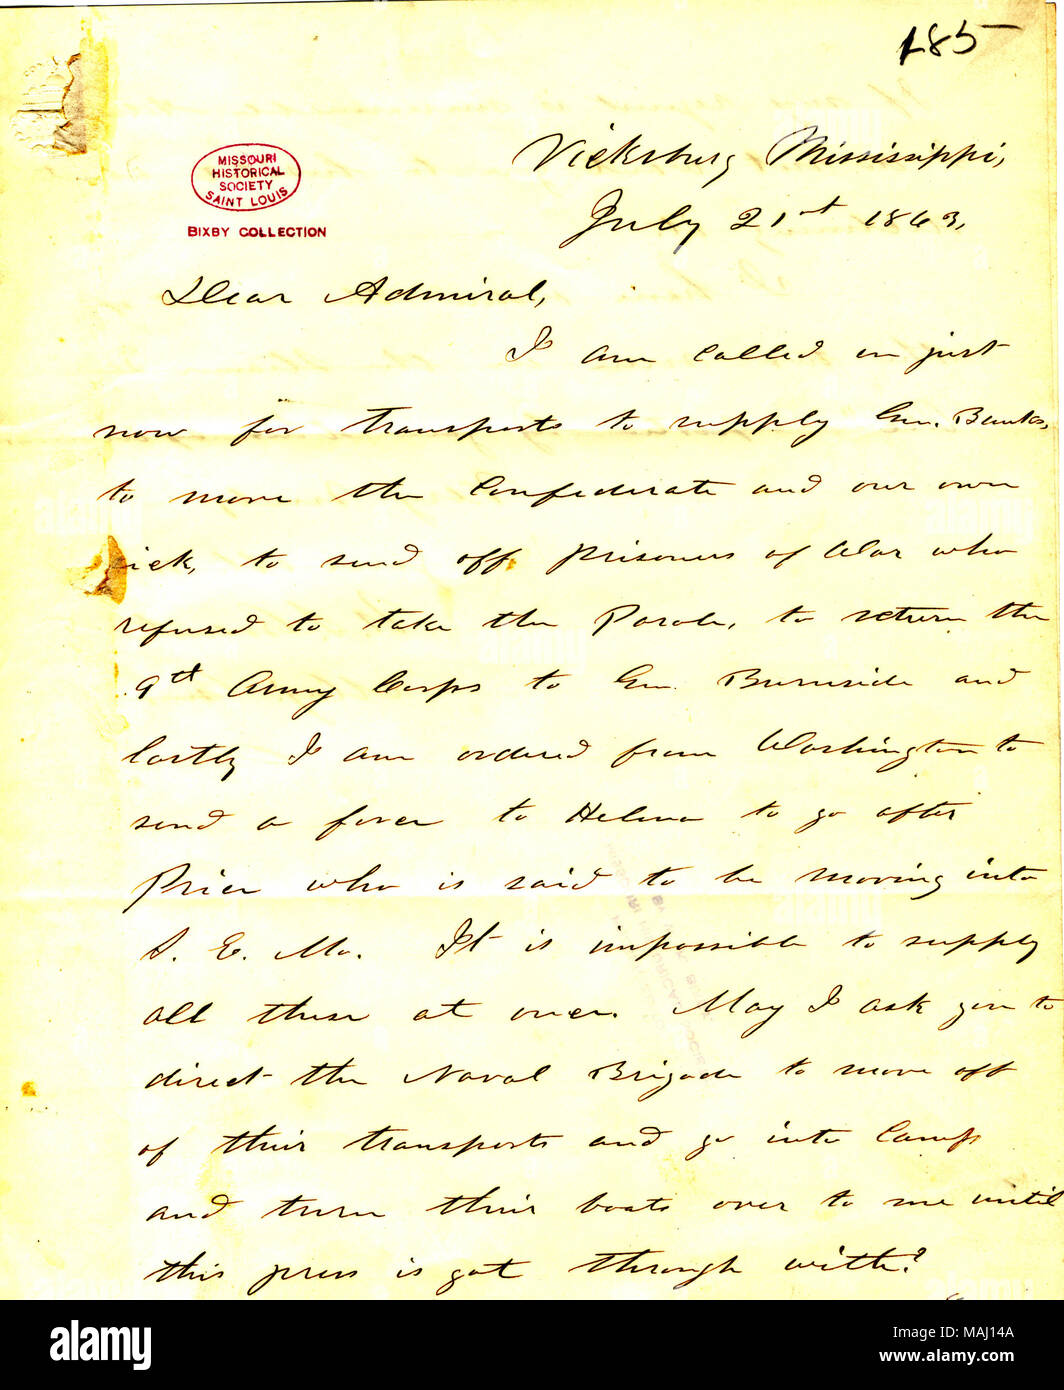 185
MISSOURI
HISTORICAL
SOCIETY
SAINT LOUIS
BIXBY COLLECTION
Vicksburg Mississippi,
July 21st 1863,
Dear Admiral,
I am called on just
now for transports to supply Gen. Banks,
to move the Confederate and our own
sick, to send off prisoners of War who
refused to take the Parole, to return the
9th Army Corps to Gen. Burnside and
lastly I am ordered from Washington to
send a force to Helena to go after
Price who is said to be moving into
S. E. Mo. It is impossible to supply
all these at once. May I ask you to
direct the Naval Brigade to move off
of their transports and go into Camp
and turn their boats over to me until
this press is got through with?
alamy
Image ID: MAJ14A
www.alamy.com